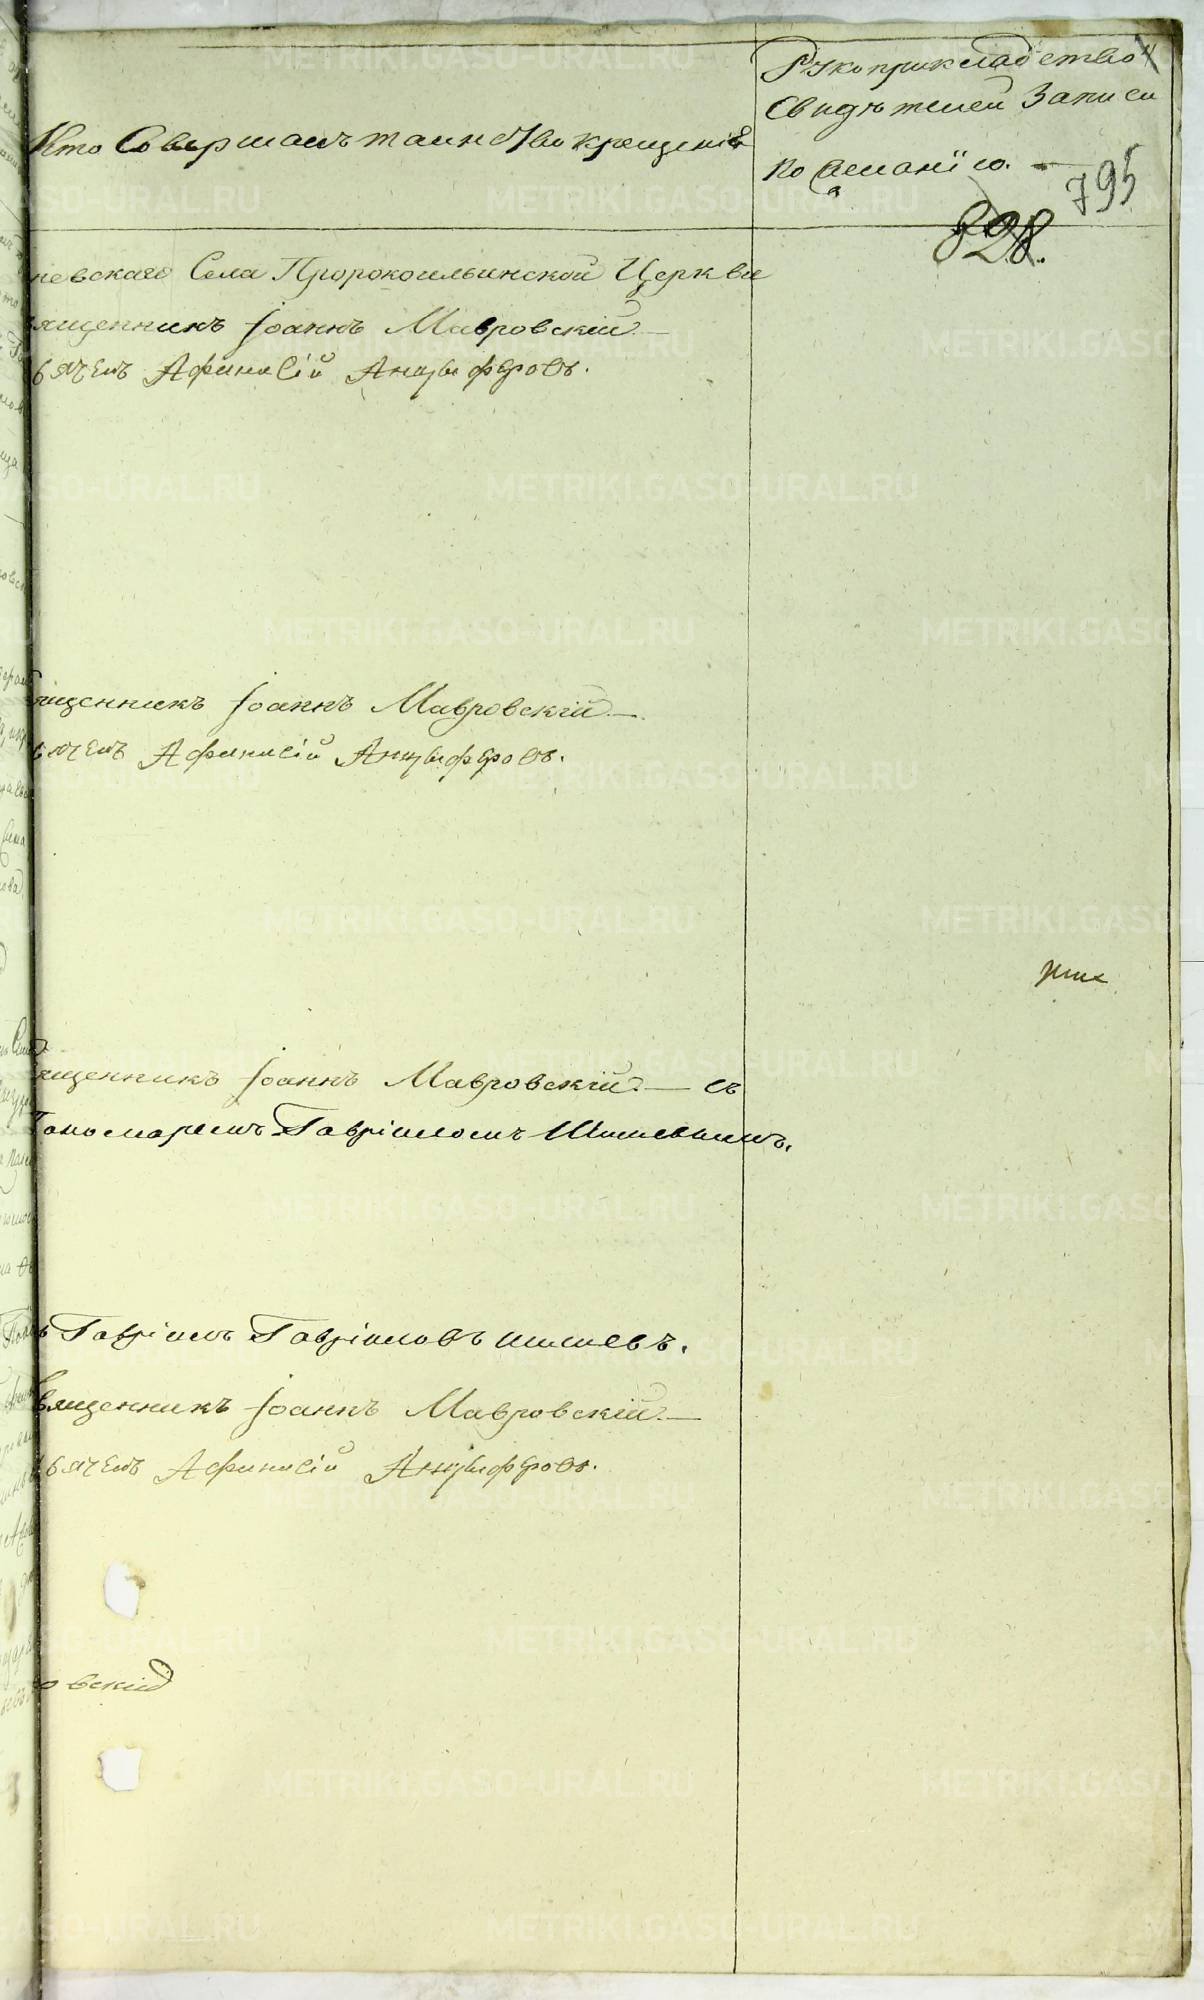 Кто Совершалъ таинство крещенія
Рукоприкладство
Свидѣтелей Записи
по желанію.
795
828.
невскаго Села Пророкоильинской Церкви
ященникъ Іоаннъ Мавровскій
ьячекъ Афанасій Анцыферовъ.
ященникъ Іоаннъ Мавровскій
ьячекъ Афанасій Анцыферовъ.
ященникъ Іоаннъ Мавровскій съ
Пономаремъ Гавріиломъ Шишевымъ.
ъ Гавріилъ Гавріиловъ шишевъ.
вященникъ Іоаннъ Мавровскій
ьячекъ Афанасій Анцыферовъ.
овскій
METRIKI.GASO-URAL.RU